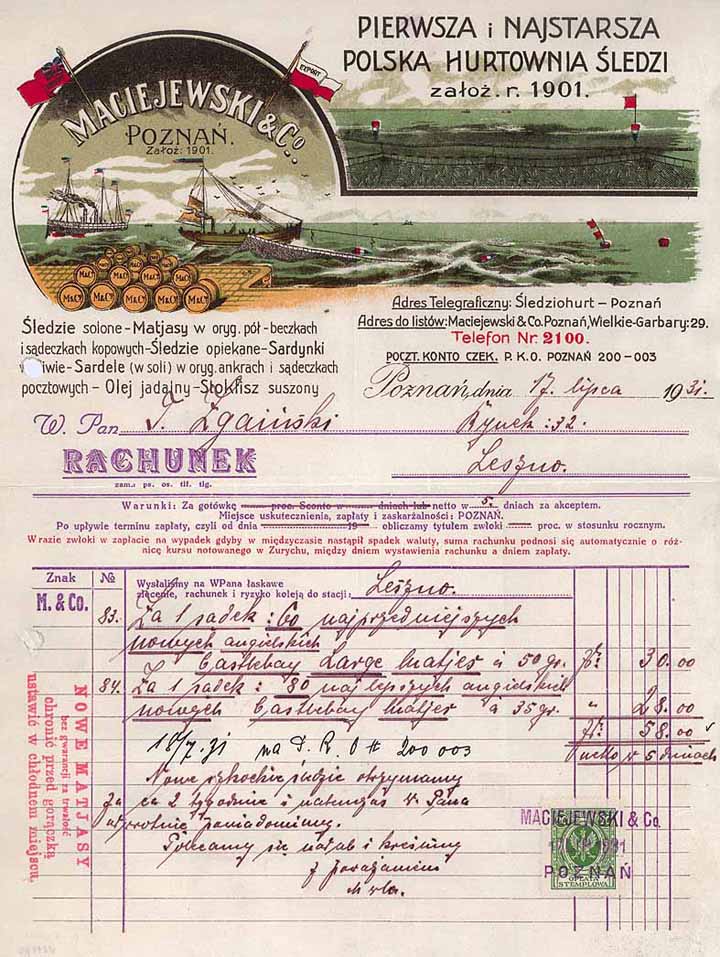 PIERWSZA i NAJSTARSZA
POLSKA HURTOWNIA ŚLEDZI
założ. r. 1901.
EXPORT
MACIEJEWSKI & Co.
POZNAŃ.
Założ: 1901.
M&Co
Śledzie solone - Matjasy w oryg. pół - beczkach
i sądeczkach kopowych - Śledzie opiekane - Sardynki
iwie - Sardele (w soli) w oryg. ankrach i sądeczkach
pocztowych - Olej jadalny - Stokfisz suszony
Adres Telegraficzny: Śledziohurt - Poznań
Adres do listów: Maciejewski & Co. Poznań, Wielkie-Garbary: 29.
Telefon Nr. 2100.
POCZT. KONTO CZEK. P. K. O. POZNAŃ 200-003
Poznań, dnia 17. lipca 1931.
W. Pan
Rynek: 32.
RACHUNEK
Leszno.
zam.: pa. os. tlf. tlg.
Warunki: Za gotówkę proc. Sconto w dniach lub netto w 5. dniach za akceptem.
Miejsce uskutecznienia, zapłaty i zaskarżalności: POZNAŃ.
Po upływie terminu zapłaty, czyli od dnia 19 obliczamy tytułem zwłoki proc. w stosunku rocznym.
W razie zwłoki w zapłacie na wypadek gdyby w międzyczasie nastąpił spadek waluty, suma rachunku podnosi się automatycznie o róż-
nicę kursu notowanego w Zurychu, między dniem wystawienia rachunku a dniem zapłaty.
Znak № Wysłaliśmy na WPana łaskawe
zlecenie, rachunek i ryzyko koleją do stacji: Leszno.
M. & Co.
83. Za 1 sądek: 60 najprzedniejszych
nowych angielskich
Castlebay Large Matjes à 50 gr. 30.00
84. Za 1 sądek: 80 najlepszych angielskich
nowych Castlebay Matjes à 35 gr. " 28.00
58.00
netto w 5 dniach
18/7.31 na P. K. O # 200 003
Nowe szkockie śledzie otrzymamy
za ca 2 tygodnie i natenczas W. Pana
odwrotnie powiadomimy.
Polecamy się nadal i kreślimy
z poważaniem
NOWE MATJASY
bez gwarancji za trwałość
chronić przed gorączką
ustawić w chłodnem miejscu.
MACIEJEWSKI & Co
POZNAŃ
OPŁATA
STEMPLOWA